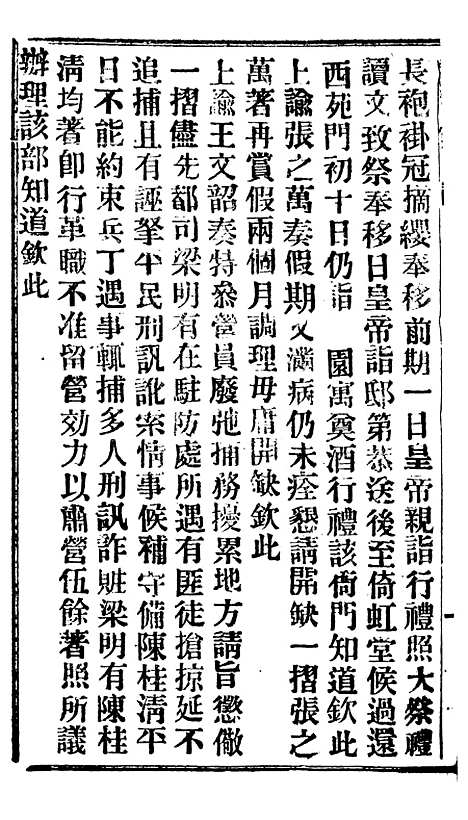 長袍褂冠摘纓奉移前期一日皇帝親詣行禮照大祭禮
讀文致祭奉移日皇帝詣邸第恭送後至倚虹堂候過還
西苑門初十日仍詣　園寓奠酒行禮該衙門知道欽此
上諭張之萬奏假期又滿病仍未痊懇請開缺一摺張之
萬著再賞假兩個月調理毋庸開缺欽此
上諭王文韶奏特叅營員廢弛捕務擾累地方請旨懲儆
一摺儘先都司梁明有在駐防處所遇有匪徒搶掠延不
追捕且有誣拏平民刑訊訛索情事候補守備陳桂清平
日不能約束兵丁遇事輒捕多人刑訊詐賍梁明有陳桂
清均著卽行革職不准留營効力以肅營伍餘著照所議
辦理該部知道欽此